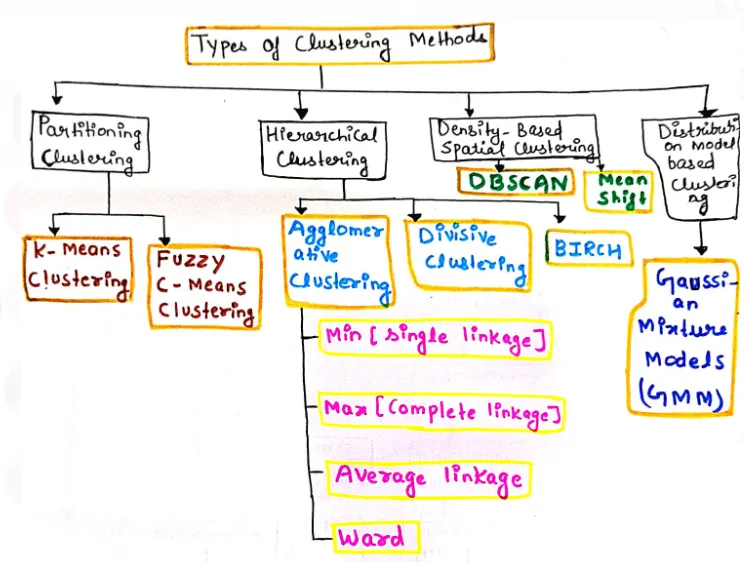 Types of Clustering Methods
Partitioning
Clustering
Hierarchical
Clustering
Density-Based
Spatial Clustering
Distributi
on Model
based
Clusteri
ng
DBSCAN
Mean
Shift
K-Means
Clustering
Fuzzy
C-Means
Clustering
Agglomer
ative
Clustering
Divisive
Clustering
BIRCH
Gaussi-
an
Mixture
Models
(GMM)
Min [single linkage]
Max [Complete linkage]
Average linkage
Ward